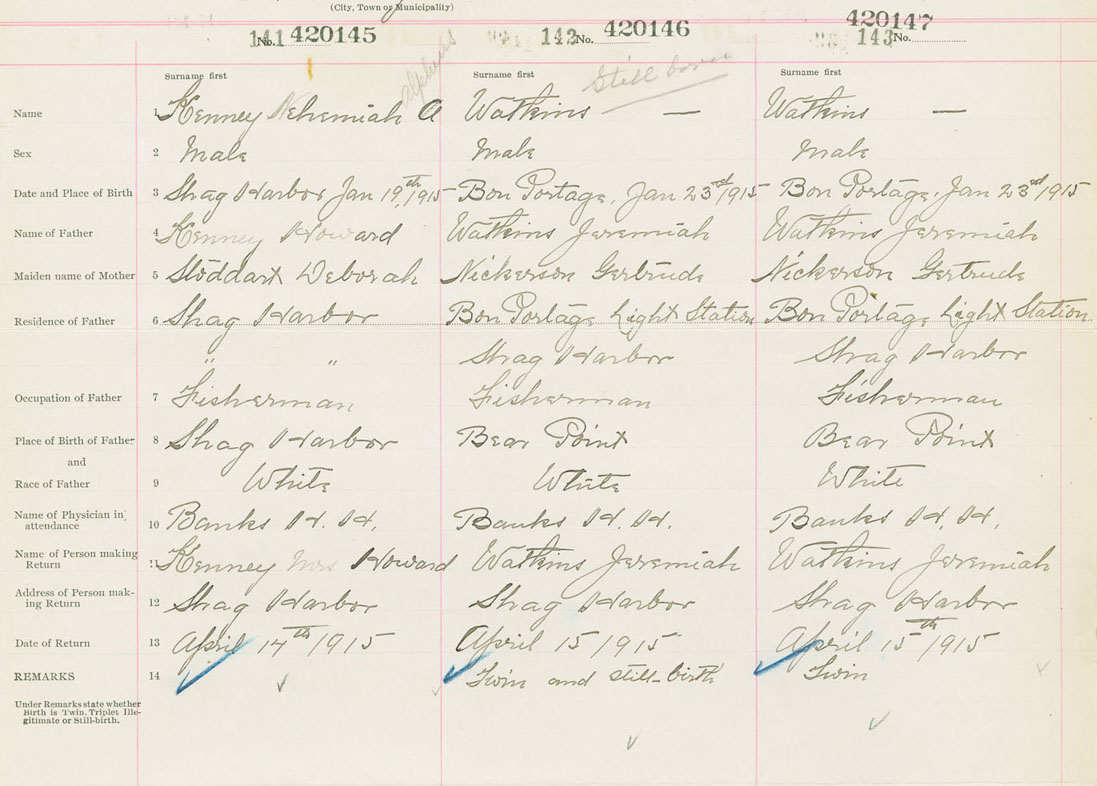 (City, Town or Municipality)
141 No. 420145 142 No. 420146 143 No. 420147
Surname first Surname first Surname first
alpheus Still born
Name 1 Kenney Nehemiah A Watkins — Watkins —
Sex 2 Male Male Male
Date and Place of Birth 3 Shag Harbor Jan 19th, 1915 Bon Portage, Jan 23rd 1915 Bon Portage, Jan 23rd 1915
Name of Father 4 Kenney Howard Watkins Jeremiah Watkins Jeremiah
Maiden name of Mother 5 Stoddart Deborah Nickerson Gertrude Nickerson Gertrude
Residence of Father 6 Shag Harbor Bon Portage Light Station Bon Portage Light Station
" " Shag Harbor Shag Harbor
Occupation of Father 7 Fisherman Fisherman Fisherman
Place of Birth of Father 8 Shag Harbor Bear Point Bear Point
and
Race of Father 9 White White White
Name of Physician in attendance 10 Banks H. H. Banks H. H. Banks H. H.
Name of Person making Return 11 Kenney Mrs Howard Watkins Jeremiah Watkins Jeremiah
Address of Person mak-
ing Return 12 Shag Harbor Shag Harbor Shag Harbor
Date of Return 13 April 14th 1915 April 15 1915 April 15th 1915
REMARKS 14 Twin and still-birth Twin
Under Remarks state whether
Birth is Twin, Triplet Ille-
gitimate or Still-birth.